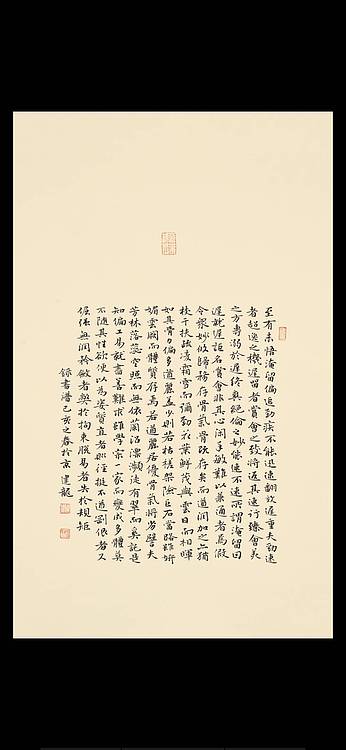 至有未悟淹留偏追勁疾不能迅速翻效遲重夫勁速
者超逸之機遲留者賞會之致將返其速行臻會美
之方專溺於遲終爽絕倫之妙能速不速所謂淹留因
遲就遲詎名賞會非其心閑手敏難以兼通者焉假
令眾妙攸歸務存骨氣骨既存矣而遒潤加之亦猶
枝干扶疏凌霜雪而彌勁花葉鮮茂與雲日而相暉
如其骨力偏多遒麗蓋少則若枯槎架險巨石當路雖妍
媚雲闕而體質存焉若遒麗居優骨氣將劣譬夫
芳林落蕊空照而無依蘭沼漂蓱徒青翠而奚託是
知偏工易就盡善難求雖學宗一家而變成多體莫
不隨其性欲便以為姿質直者則徑侹不遒剛佷者又
倔強無潤矜斂者弊於拘束脫易者失於規矩
錄書譜己亥之春於京建龍